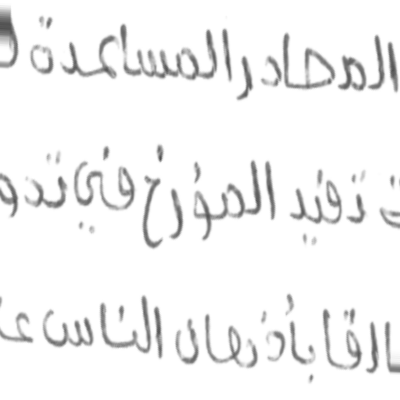 المصادر المساعدة
تفيد المؤرخ في تدو
بأذهان الناس